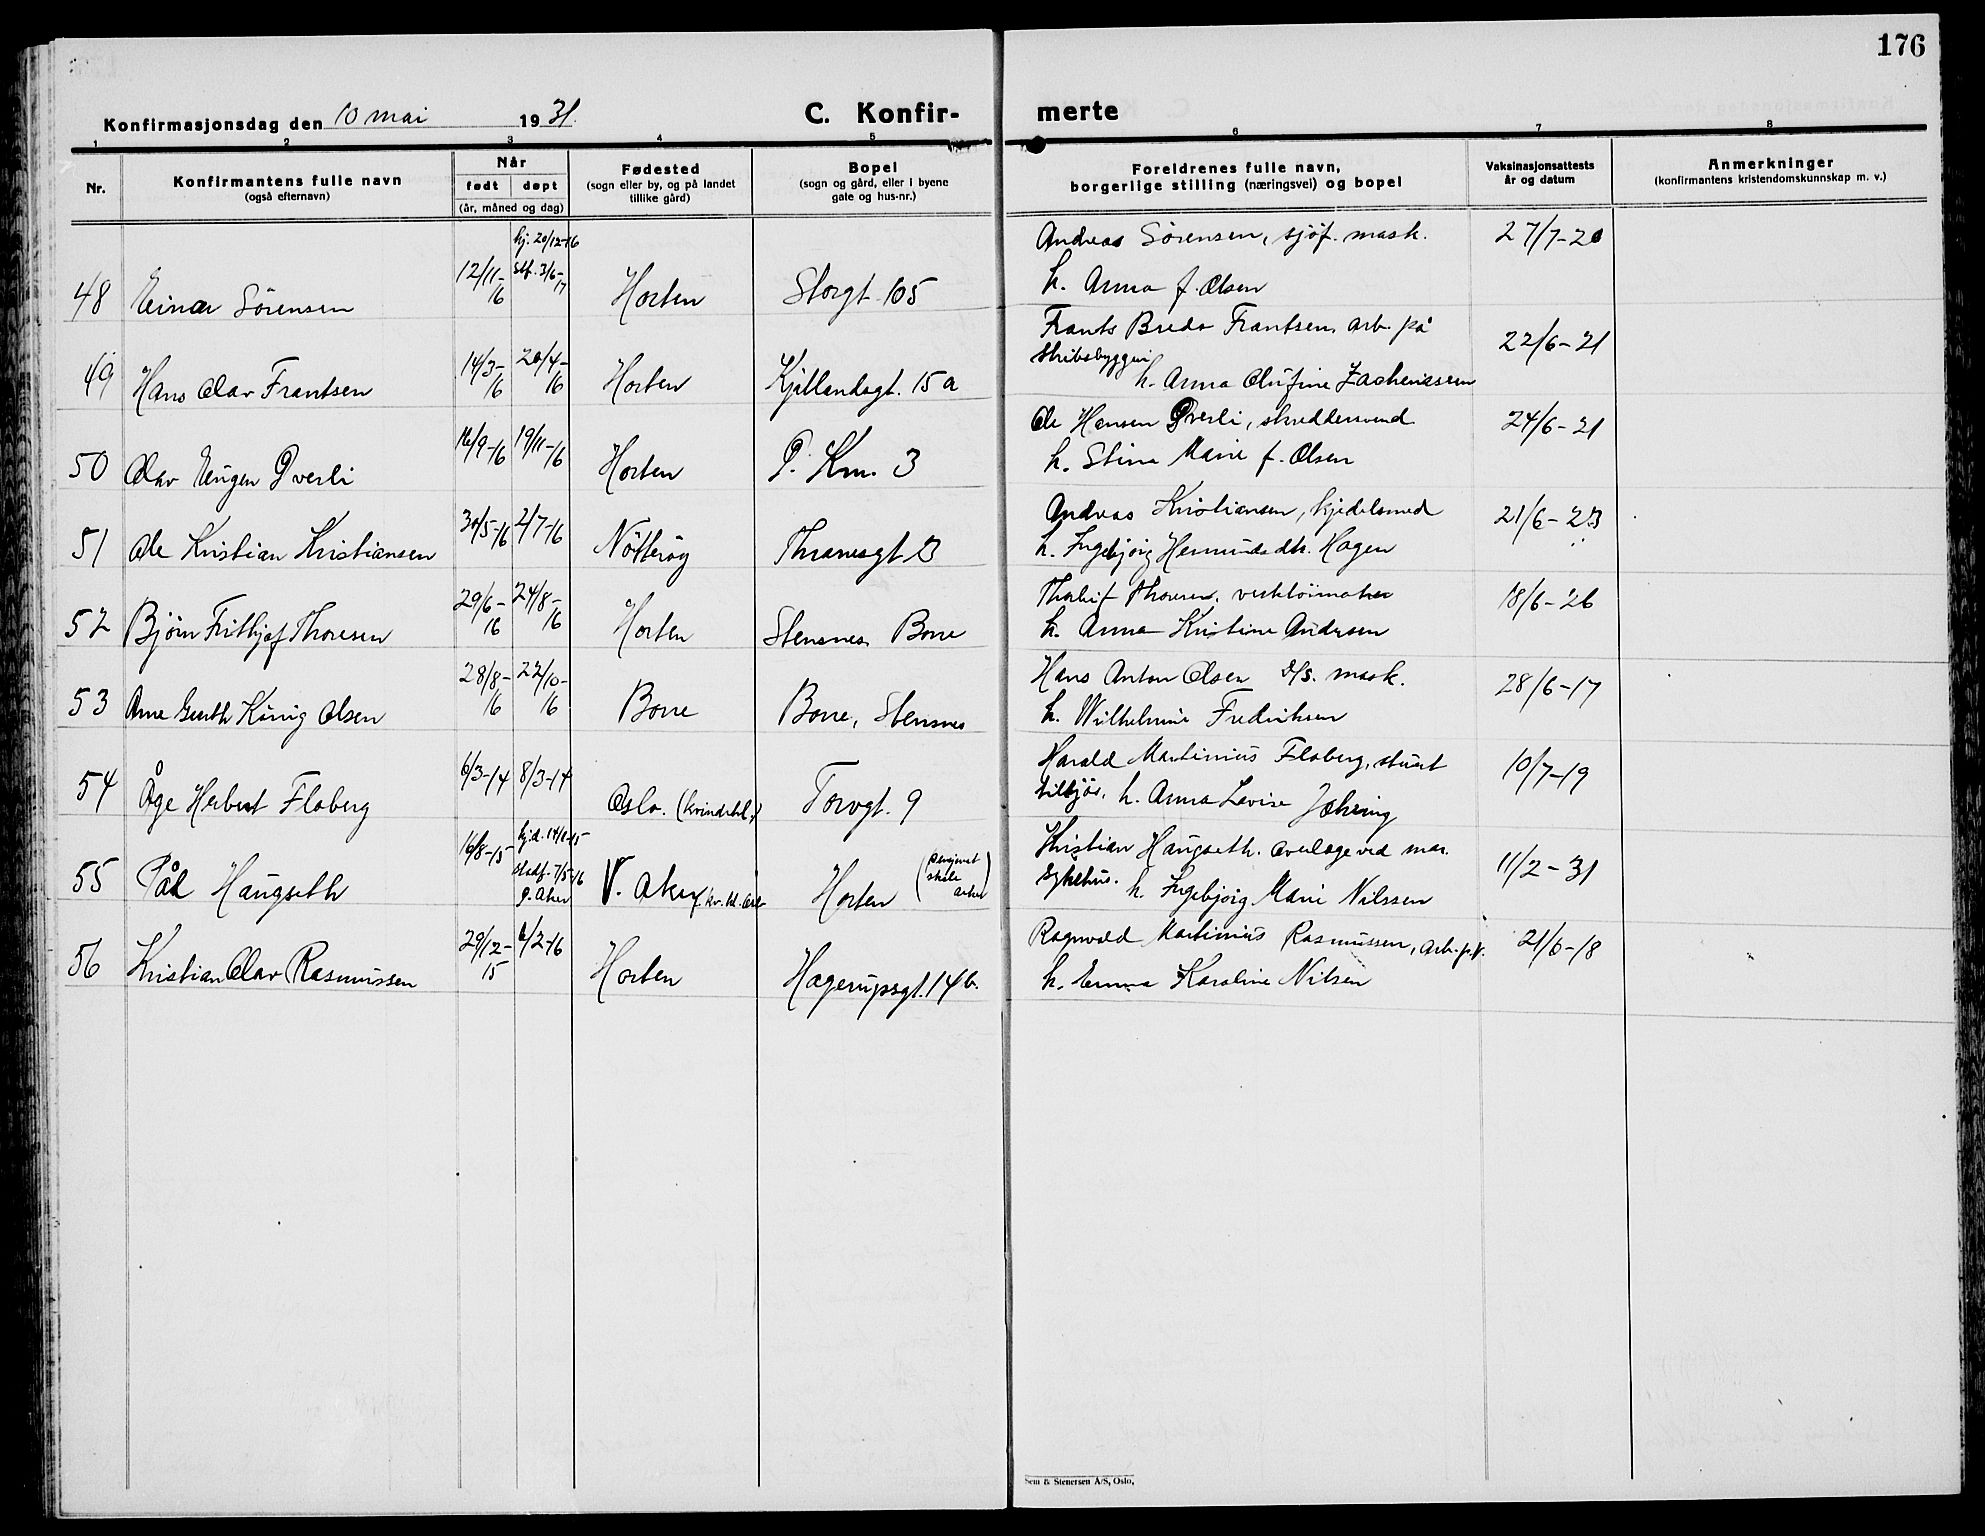 176
Konfirmasjonsdag den 10 mai 1931.
C. Konfir- merte
1 2 3 4 5 6 7 8
Nr.
Konfirmantens fulle navn
(også efternavn)
Når
født døpt
(år, måned og dag)
Fødested
(sogn eller by, og på landet
tillike gård)
Bopel
(sogn og gård, eller i byene
gate og hus-nr.)
Foreldrenes fulle navn,
borgerlige stilling (næringsvei) og bopel
Vaksinasjonsattests
år og datum
Anmerkninger
(konfirmantens kristendomskunnskap m. v.)
hj. 20/12-16
Andreas Sörensen, sjöf. mask. 27/7-20
48 Einar Sörensen 12/11-16 stf. 3/6-17 Horten Storgt. 105
h. Anna f. Olsen
Frants Bredo Frantsen, arb. på
49 Hans Olav Frantsen 14/3-16 20/4-16 Horten Kjillandsgt. 15 a
Skibsbyggeri 22/6-21
h. Anna Olufine Zachariassen
Ole Hansen Dverli, skreddersvend 24/6-21
50 Olav Eugen Dverli 16/9-16 19/11-16 Horten P. Km. 3
h. Stina Marie f. Olsen
Andreas Kristiansen, kjedelsmed 21/6-23
51 Ole Kristian Kristiansen 30/5-16 2/7-16 Nötteröy Thranesgt.
h. Ingebjörg Hermunds dtr. Hagen
Thorleif Thoresen, verktöimaker 18/6-26
52 Björn Frithjof Thoresen 29/6-16 24/8-16 Horten Stensnes Borre
h. Anna Kristine Andersen
Hans Anton Olsen d/s. mask. 28/6-17
53 Arne Gerth König Olsen 28/8-16 22/10-16 Borre Borre, Stensnes
h. Wilhelmine Fredriksen
Harald Martinius Floberg, stuert 10/7-19
54 Åge Herbert Floberg 6/3-14 8/3-14 Oslo. (Kvindekl.) Torvgt. 9
tilsjös, h. Anna Lovise
Kristian Haugseth. Overlæge ved mar. 11/2-31
55 Pål Haugseth 16/8-15 hjd. 14/11-15
stadf. 7/5-16
p. Aker V. Aker, kv. kl. Oslo Horten
sykehus. h. Ingebjörg Marie Nilssen
Ragnvald Martinius Rasmussen, arb. p. V. 21/6-18
56 Kristian Olav Rasmussen 29/12-15 6/2-16 Horten Hagerupsgt. 14 b.
h. Emma Karoline Nilsen
Sem & Stenersen A/S, Oslo.